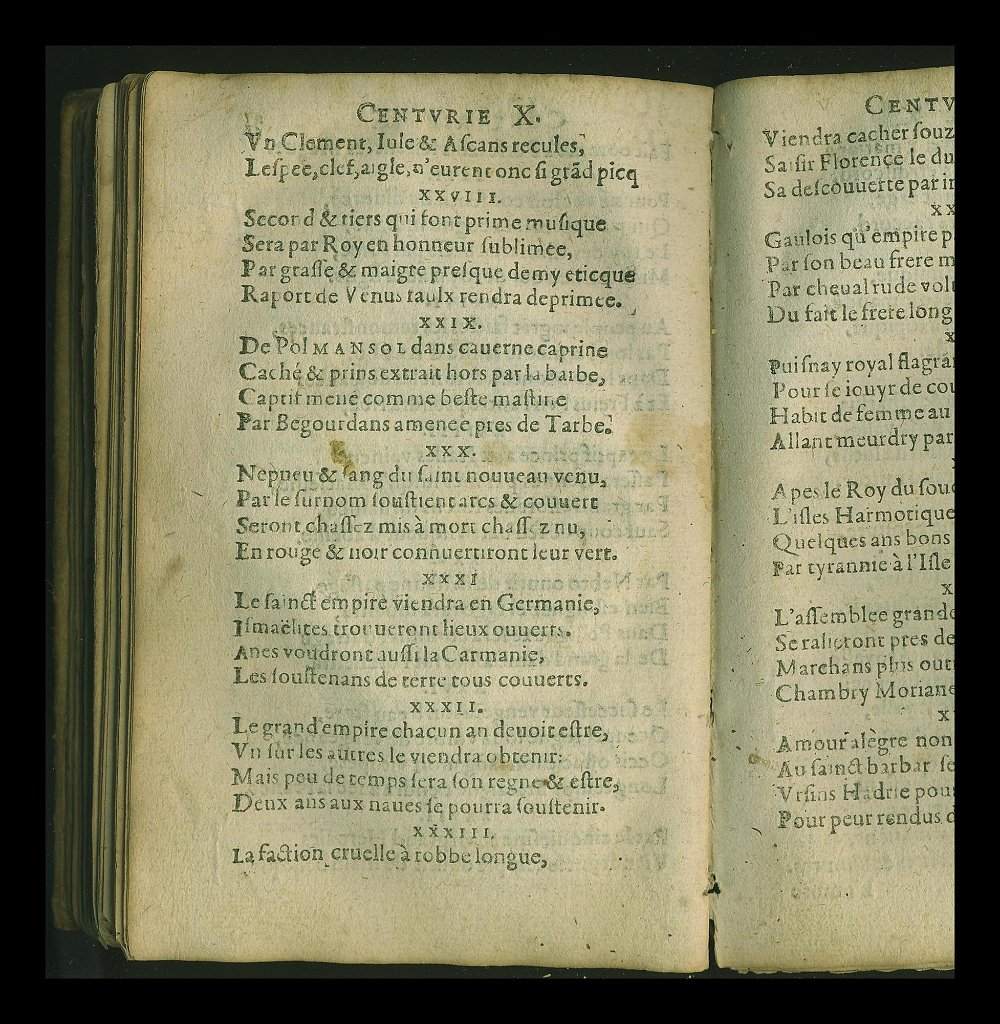 CENTVRIE X.
Vn Clement, Iule & Aſcans recules,
Leſpee, clef, aigle, n'eurent onc ſi grãd picq
XXVIII.
Second & tiers qui font prime muſique
Sera par Roy en honneur ſublimee,
Par graſſe & maigre preſque demy eticque
Raport de Venus faulx rendra deprimee.
XXIX.
De Pol MANSOL dans cauerne caprine
Caché & prins extrait hors par la barbe,
Captif mene comme beſte maſtine
Par Begourdans amenee pres de Tarbe.
XXX.
Nepueu & ſang du ſaint nouueau venu,
Par le ſurnom ſouſtient arcs & couuert
Seront chaſſez mis à mort chaſſ z nu,
En rouge & noir conuuertiront leur vert.
XXXI
Le ſainct empire viendra en Germanie,
Iſmaëlites trouueront lieux ouuerts.
Anes voudront auſſi la Carmanie,
Les ſouſtenans de terre tous couuerts.
XXXII.
Le grand empire chacun an deuoit eſtre,
Vn ſur les autres le viendra obtenir:
Mais peu de temps ſera ſon regne & eſtre,
Deux ans aux naues ſe pourra ſouſtenir.
XXXIII.
La faction cruelle à robbe longue,
CENTV
Viendra cacher ſouz
Saiſir Florence le du
Sa deſcouuerte par
XX
Gaulois qu'empire p
Par ſon beau frere m
Par cheual rude vol
Du fait le frere long
X
Puiſnay royal flagra
Pour ſe iouyr de cou
Habit de femme au
Allant meurdry par
Apes le Roy du ſou
L'iſles Harmotique
Quelques ans bons
Par tyrannie à l'Iſle
X
L'aſſemblee grande
Se ralieront pres de
Marchans plus out
Chambry Moriane
X
Amour alegre non
Au ſainct barbar ſe
Vrſins Hadrie pou
Pour peur rendus d